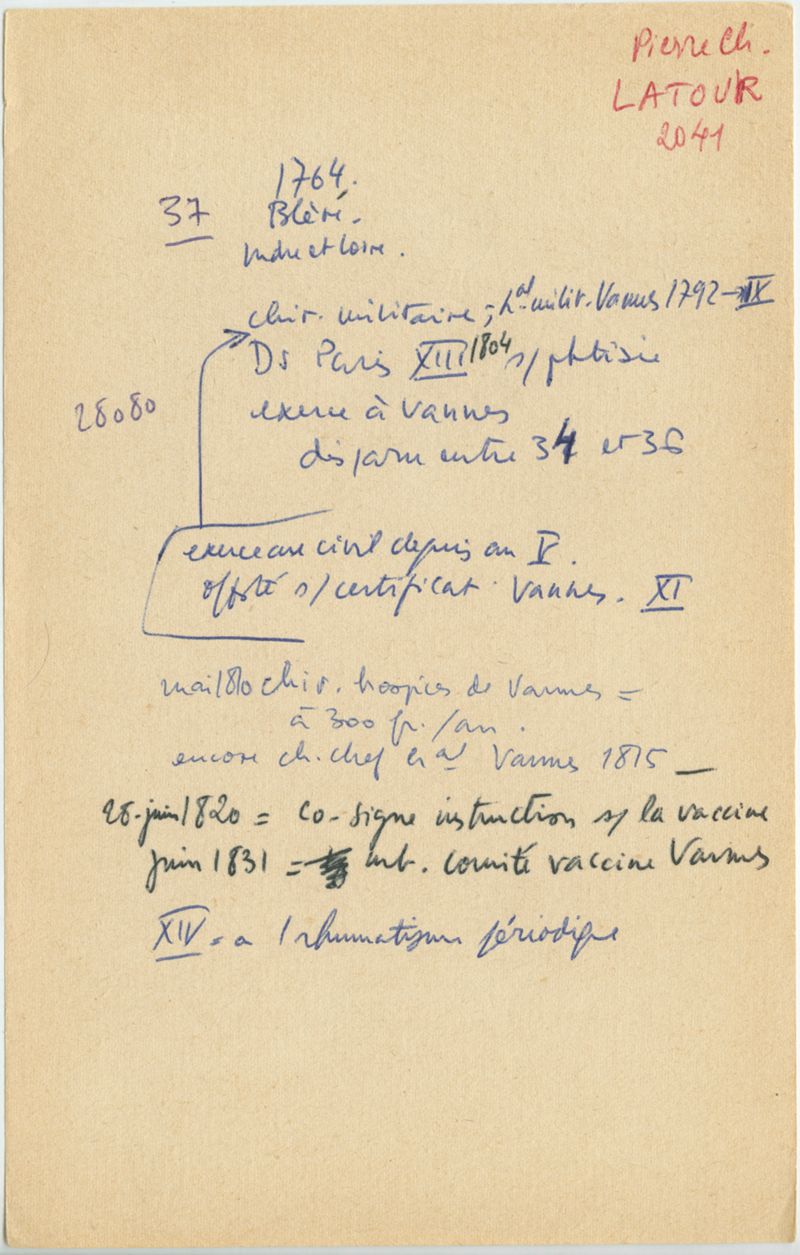 Pierre Ch.
LATOUR
2041
1764.
37 Bléré.
Indre et Loire.
chir. militaire ; hal milit. Vannes 1792 → IX
Dr Paris XIII 1804 s/ phtisie
28080
exerce à Vannes
disparu entre 34 et 36
exerce civil depuis an V.
off. té s/ certificat. Vannes. XI
mai 1810 chir. hospices de Vannes =
à 300 fr. /an.
encore ch. chef al Vannes 1815 _
28 juin 1820 = co-signe instruction s/ la vaccine
juin 1831 = mb. comité vaccine Vannes
XIV = a 1 rhumatisme périodique